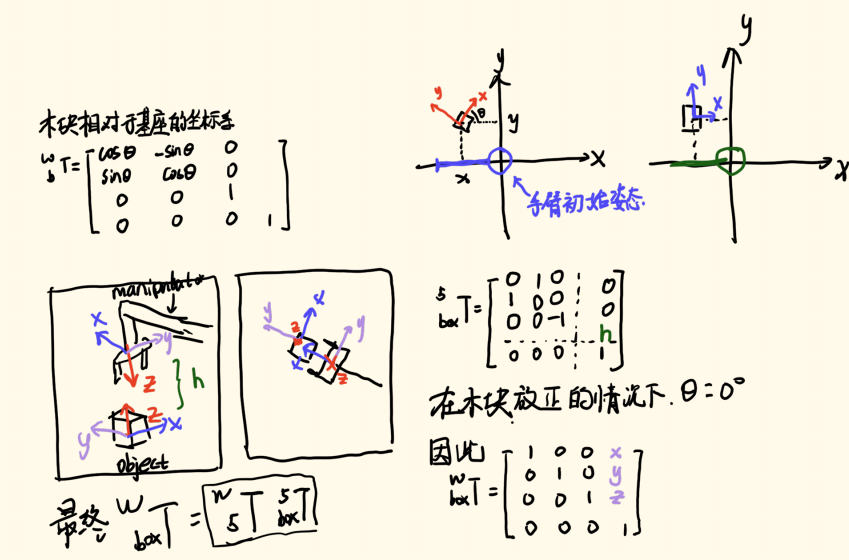 木块相对于基座的坐标系
w b T = [ cosθ -sinθ 0
sinθ cosθ 0
0 0 1
0 0 0 1 ]
y
y x θ
y
x
x
手臂初始姿态.
y
y
x
x
manipulator
x
y
z
h
z
y
x
object
x
y
z
y
x
z
5 box T = [ 0 1 0 0
1 0 0 0
0 0 -1 h
0 0 0 1 ]
在木块放正的情况下. θ = 0°
因此
w box T = [ 1 0 0 x
0 1 0 y
0 0 1 z
0 0 0 1 ]
最终 w box T = w 5 T 5 box T